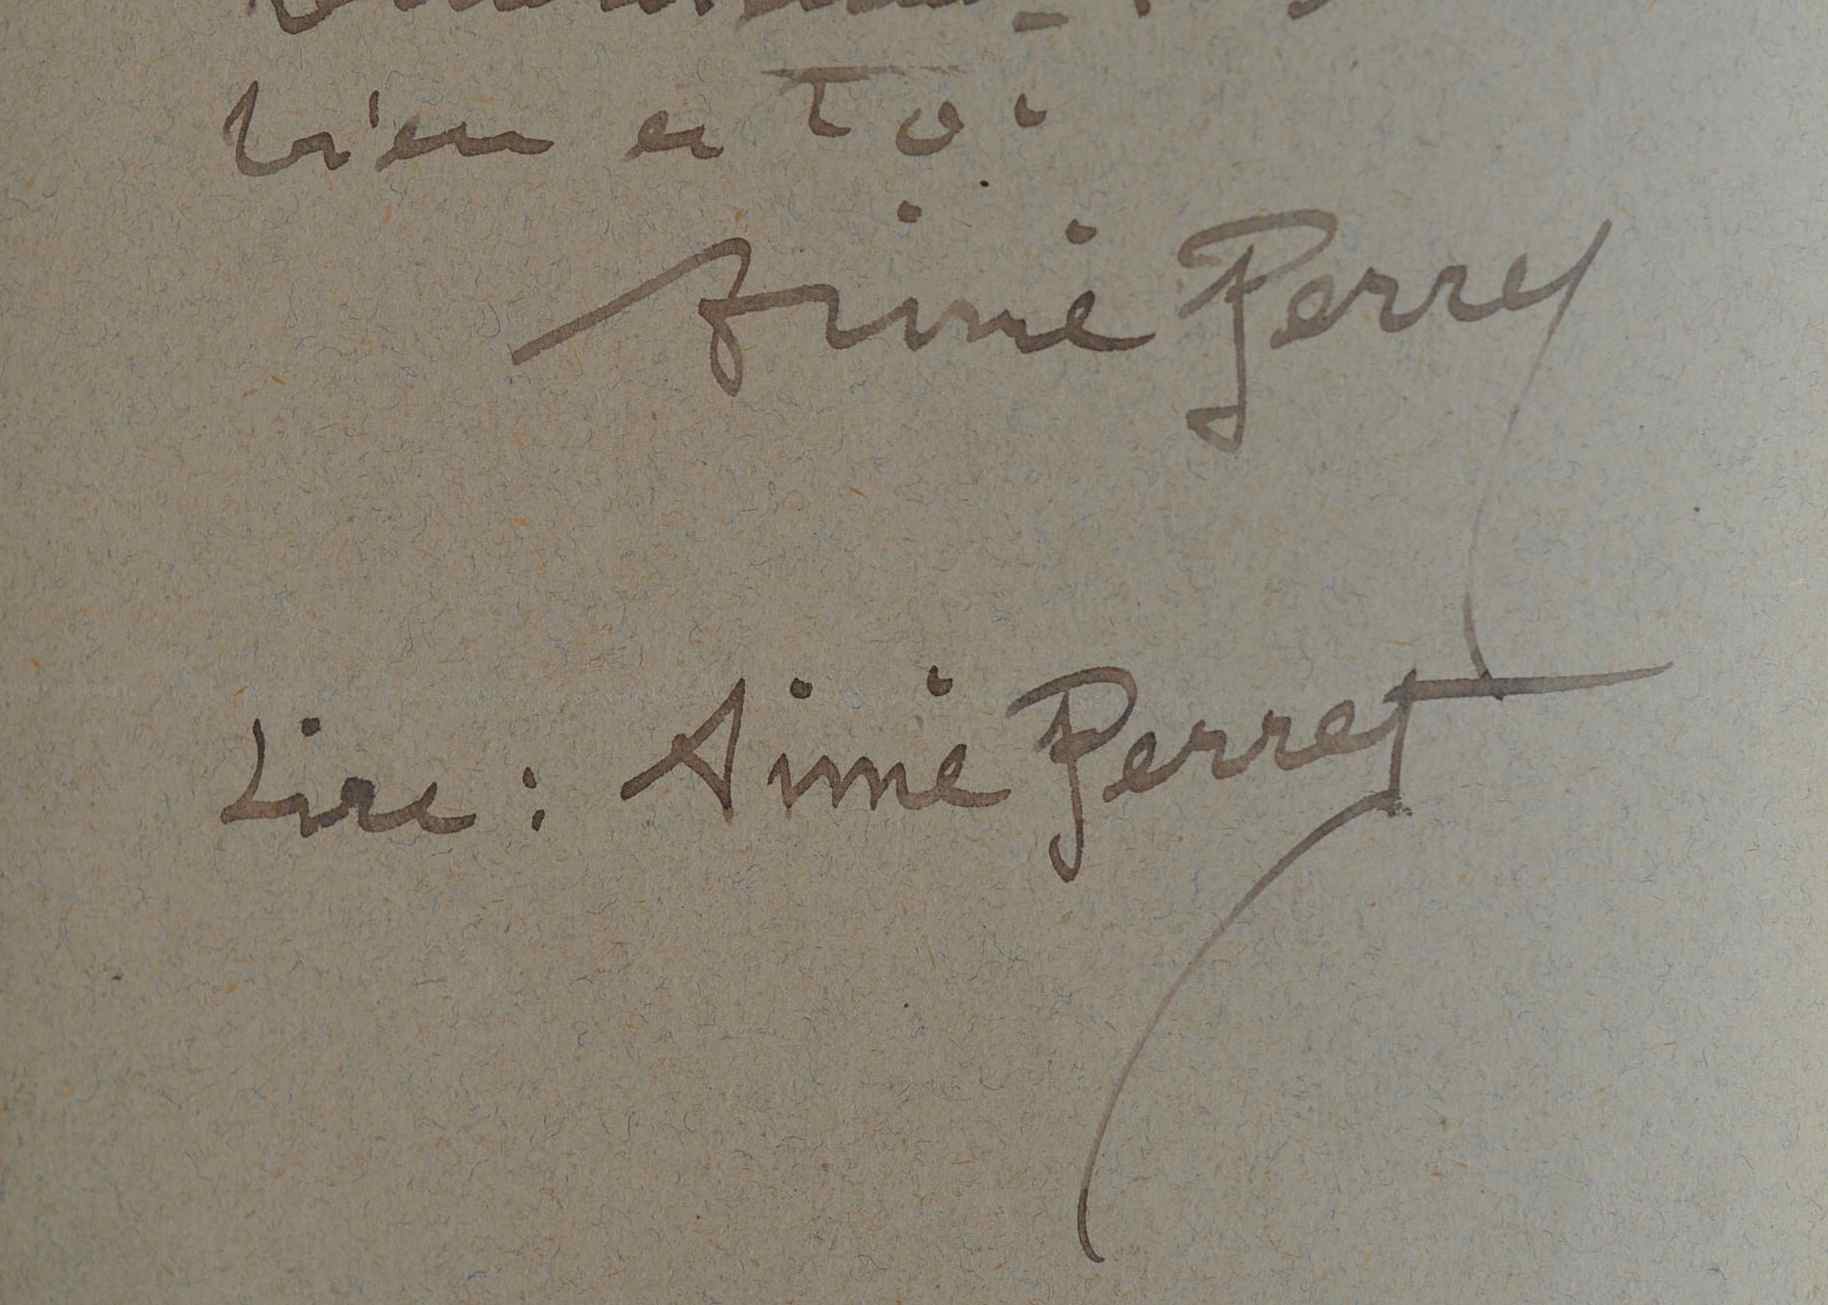 bien à toi
Aimé Perret
Lire : Aimé Perret